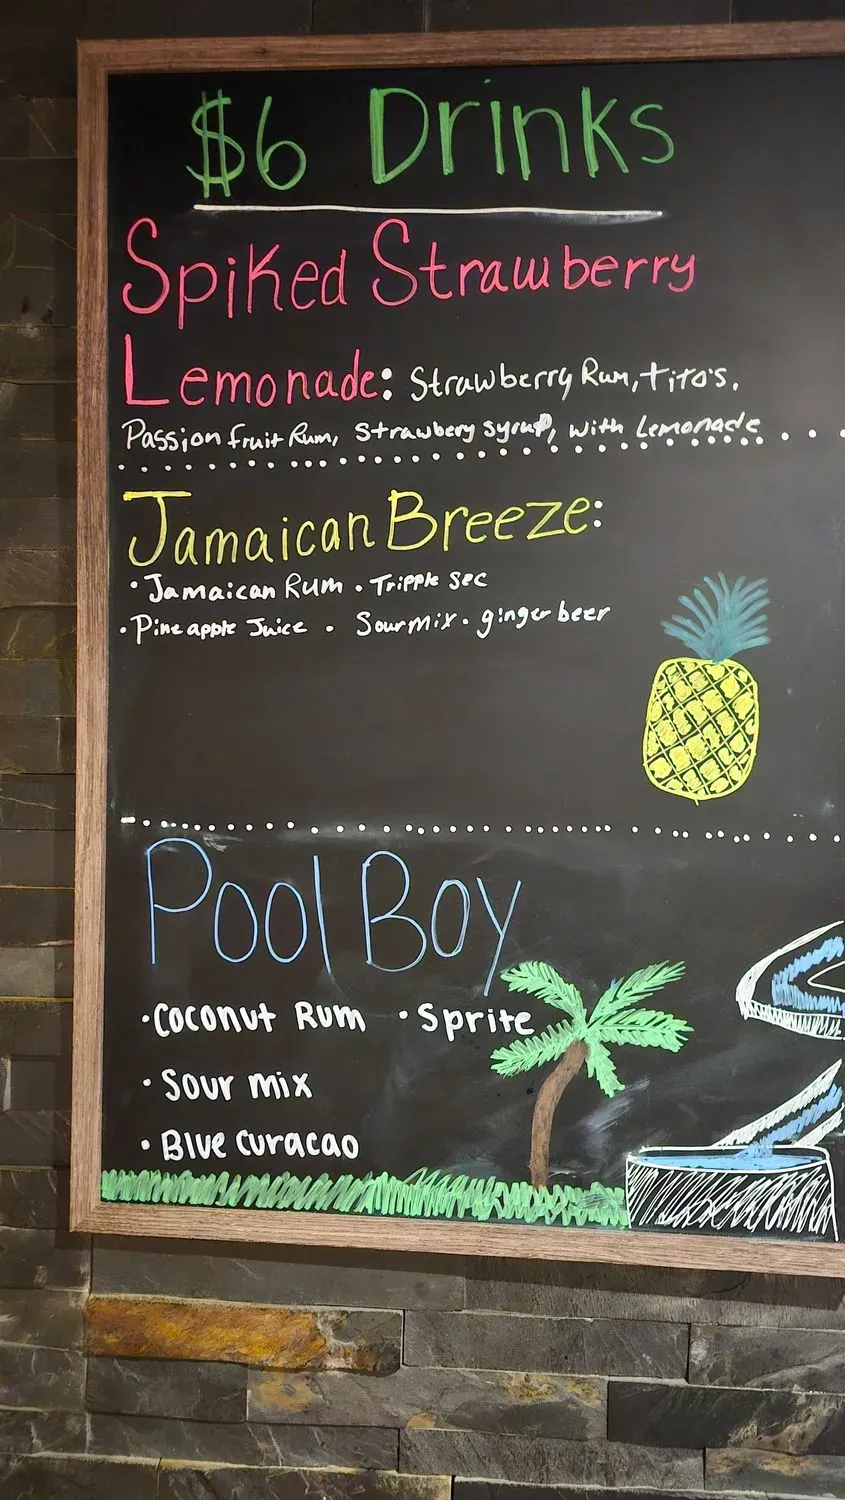 $6 Drinks
Spiked Strawberry
Lemonade: Strawberry Rum, Tito's,
Passion fruit Rum, Strawbery syrup, with Lemonade
Jamaican Breeze:
• Jamaican Rum • Tripple sec
• Pineapple Juice • Sourmix • ginger beer
Pool Boy
• Coconut Rum • Sprite
• Sour mix
• Blue curacao